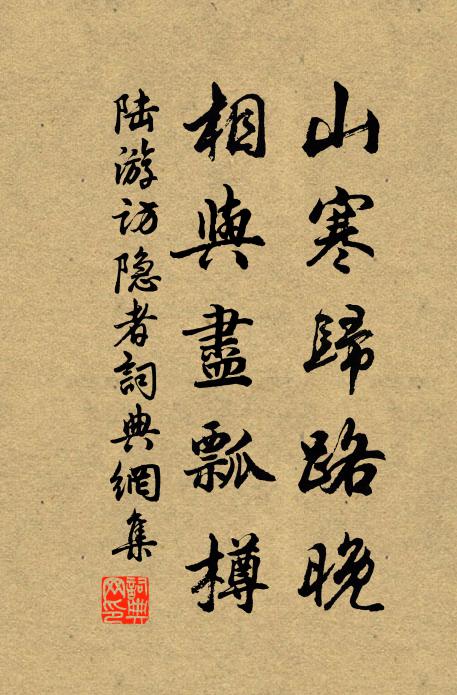 山寒歸路晚
相與盡瓢樽
陆游访隐者詞典網集
詞典網印